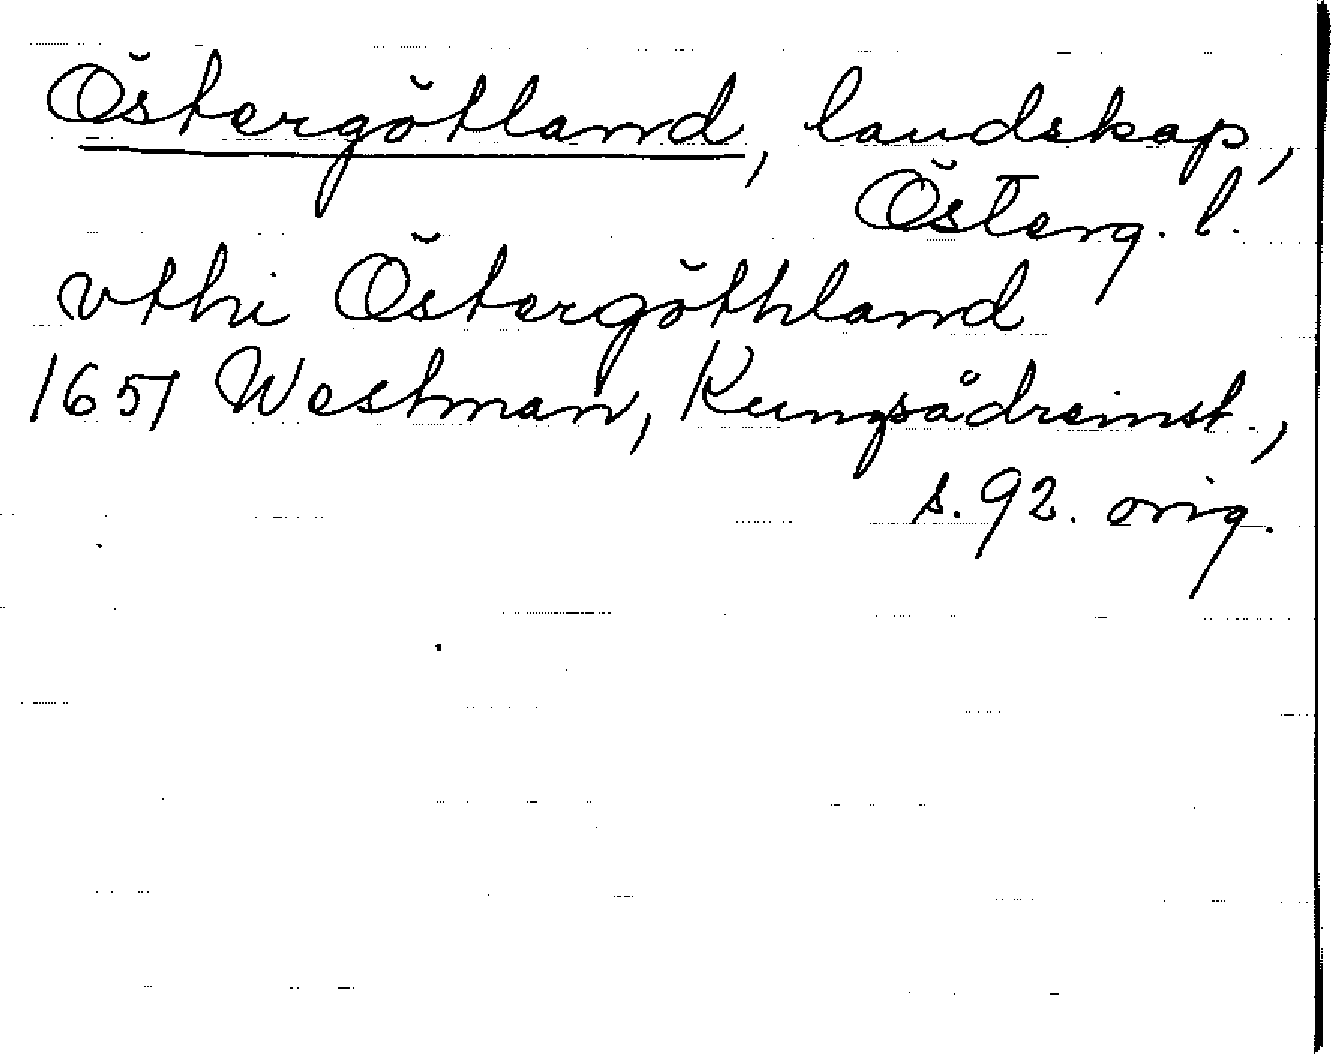 Östergötland, landskap,
Österg. l.
vthi Östergöthland
1651 Westman, Kungsådreinst.,
s. 92. orig.